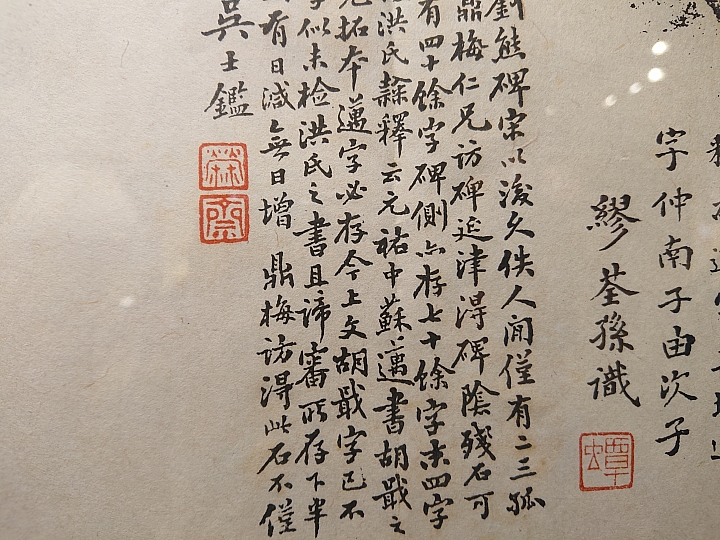 字仲南子由次子
繆荃孫識
蟫
劉熊碑宋以後久佚人間僅有二三孤
鼎梅仁兄訪碑延津得碑陰殘石可
有四十餘字碑側亦存七十餘字末四字
洪氏隸釋云元祐中蘇邁書胡戢之
拓本邁字必存今上文胡戢字已不
似未检洪氏之書且諦審所存下半
有日減無日增 鼎梅訪得此石不僅
吳士鑑